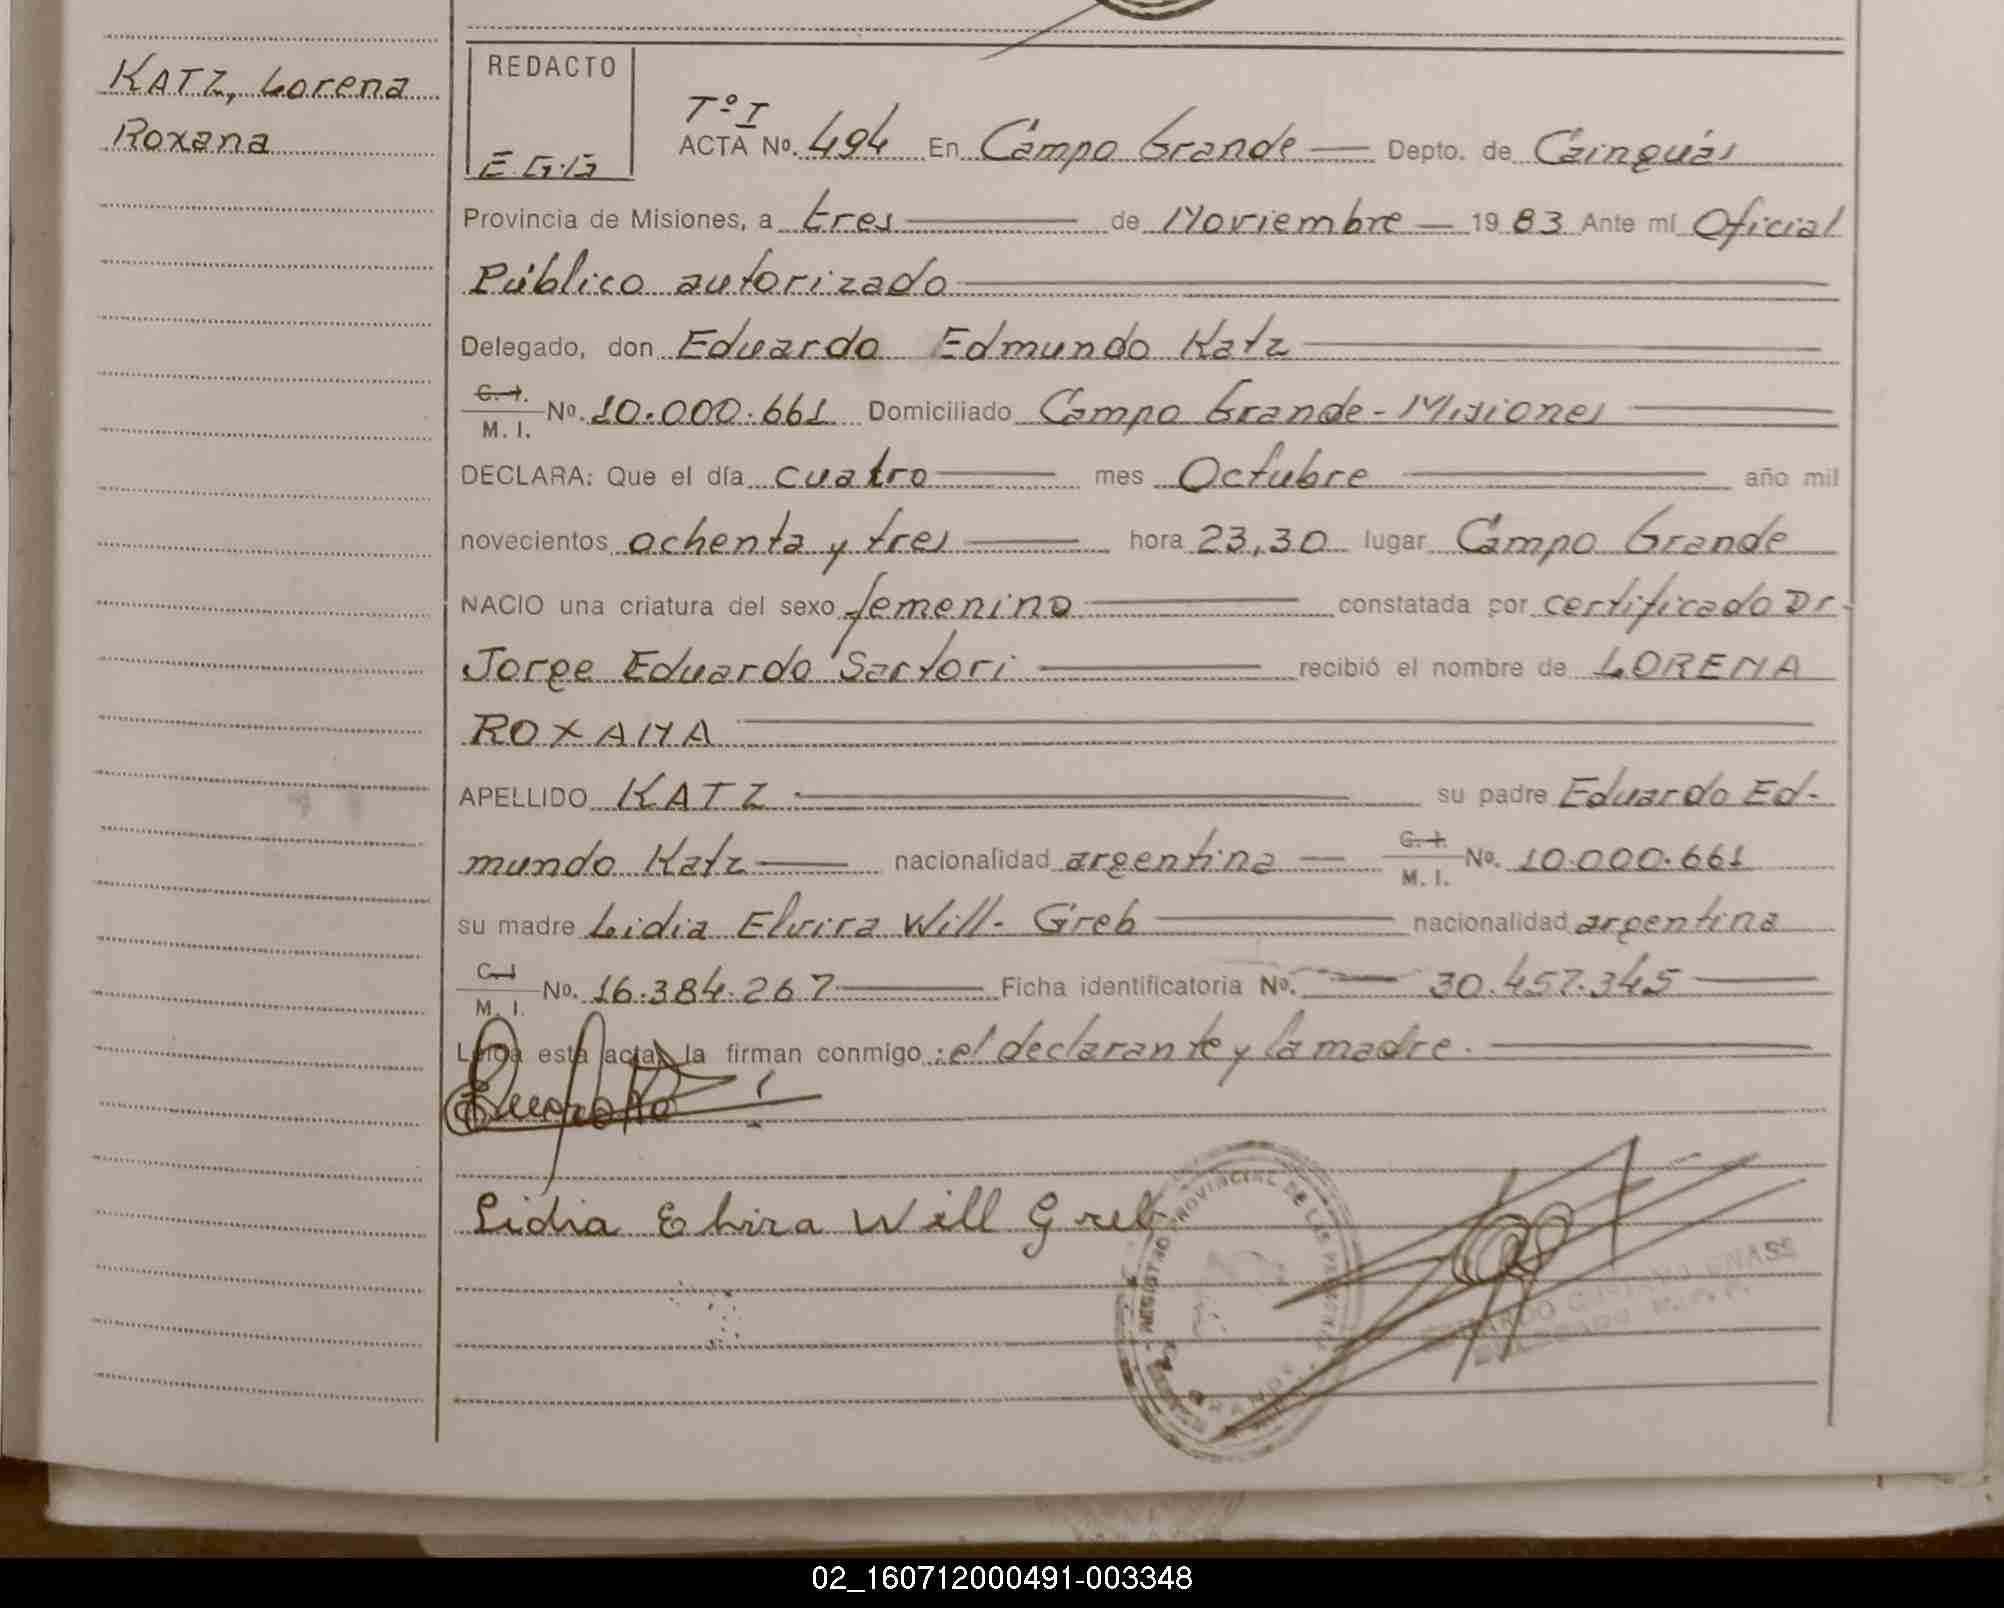 KATZ, Lorena
Roxana
REDACTO
E.G.B
Tº I
ACTA Nº. 494 En Campo Grande Depto. de Cainguás
Provincia de Misiones, a tres de Noviembre 1983 Ante mí Oficial
Público autorizado
Delegado, don Eduardo Edmundo Katz
C. I.
M. I. Nº. 10.000.661 Domiciliado Campo Grande - Misiones
DECLARA: Que el día cuatro mes Octubre año mil
novecientos ochenta y tres hora 23,30 lugar Campo Grande
NACIO una criatura del sexo femenino constatada por certificado Dr.
Jorge Eduardo Sartori recibió el nombre de LORENA
ROXANA
APELLIDO KATZ su padre Eduardo Ed-
mundo Katz nacionalidad argentina C. I. M. I. Nº. 10.000.661
su madre Lidia Elvira Will - Greb nacionalidad argentina
C. I.
M. I. Nº. 16.384.267 Ficha identificatoria Nº. 30.457.345
Leída esta acta, la firman conmigo: el declarante y la madre.
Lidia Elvira Will Greb
REGISTRO PROVINCIAL DE LAS PERSONAS
02_160712000491-003348